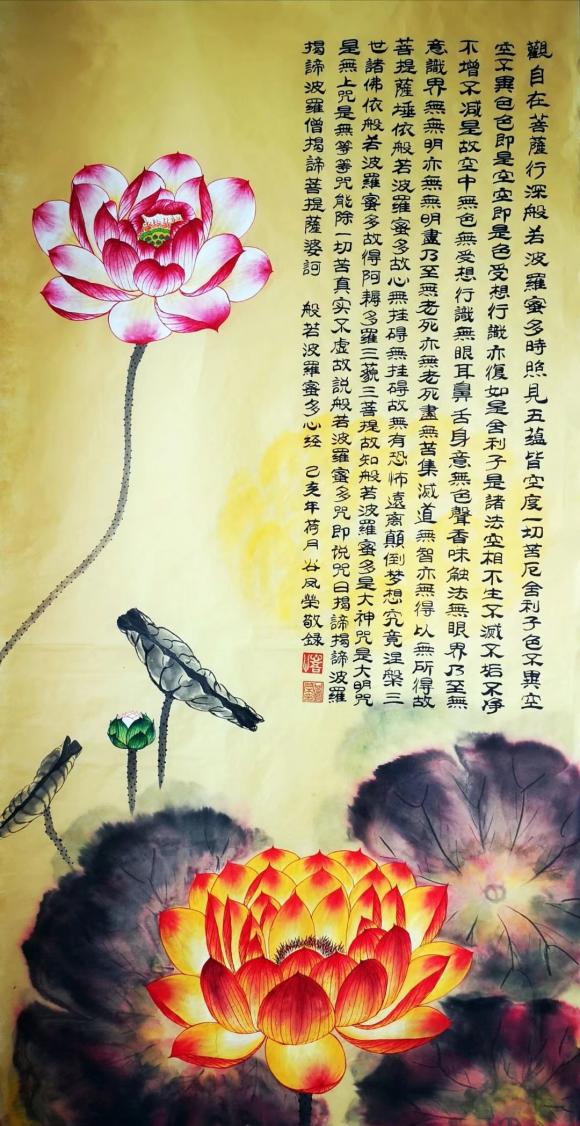 觀自在菩薩行深般若波羅蜜多時照見五蘊皆空度一切苦厄舍利子色不異空
空不異色色即是空空即是色受想行識亦復如是舍利子是諸法空相不生不滅不垢不净
不增不减是故空中無色無受想行識無眼耳鼻舌身意無色聲香味触法無眼界乃至無
意識界無無明亦無無明盡乃至無老死亦無老死盡無苦集滅道無智亦無得以無所得故
菩提薩埵依般若波羅蜜多故心無挂碍無挂碍故無有恐怖遠离顛倒梦想究竟涅槃三
世諸佛依般若波羅蜜多故得阿耨多羅三藐三菩提故知般若波羅蜜多是大神咒是大明咒
是無上咒是無等等咒能除一切苦真实不虚故説般若波羅蜜多咒即説咒曰揭諦揭諦波羅
揭諦波羅僧揭諦菩提薩婆訶 般若波羅蜜多心经 己亥年荷月谷凤榮敬録